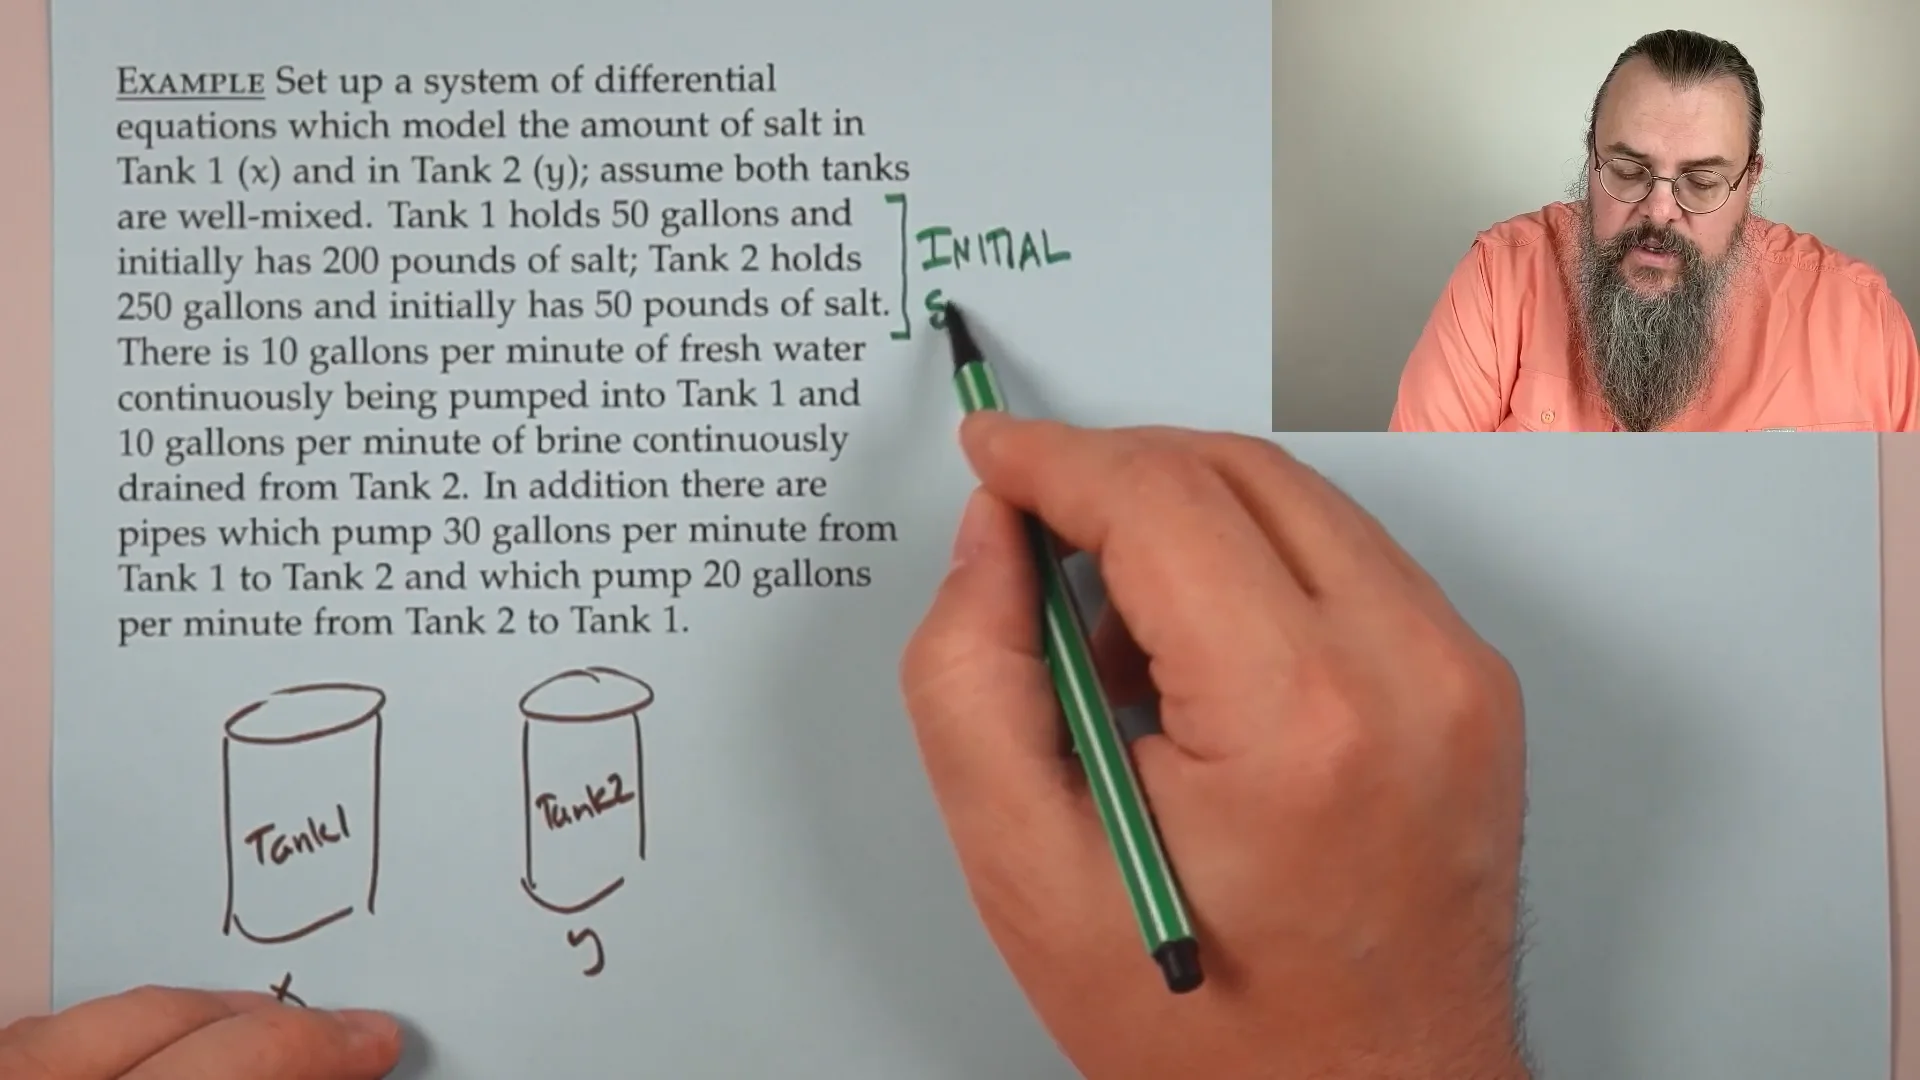 EXAMPLE Set up a system of differential
equations which model the amount of salt in
Tank 1 (x) and in Tank 2 (y); assume both tanks
are well-mixed. Tank 1 holds 50 gallons and
initially has 200 pounds of salt; Tank 2 holds
250 gallons and initially has 50 pounds of salt.
There is 10 gallons per minute of fresh water
continuously being pumped into Tank 1 and
10 gallons per minute of brine continuously
drained from Tank 2. In addition there are
pipes which pump 30 gallons per minute from
Tank 1 to Tank 2 and which pump 20 gallons
per minute from Tank 2 to Tank 1.
INITIAL
S
Tank1
Tank2
x
y